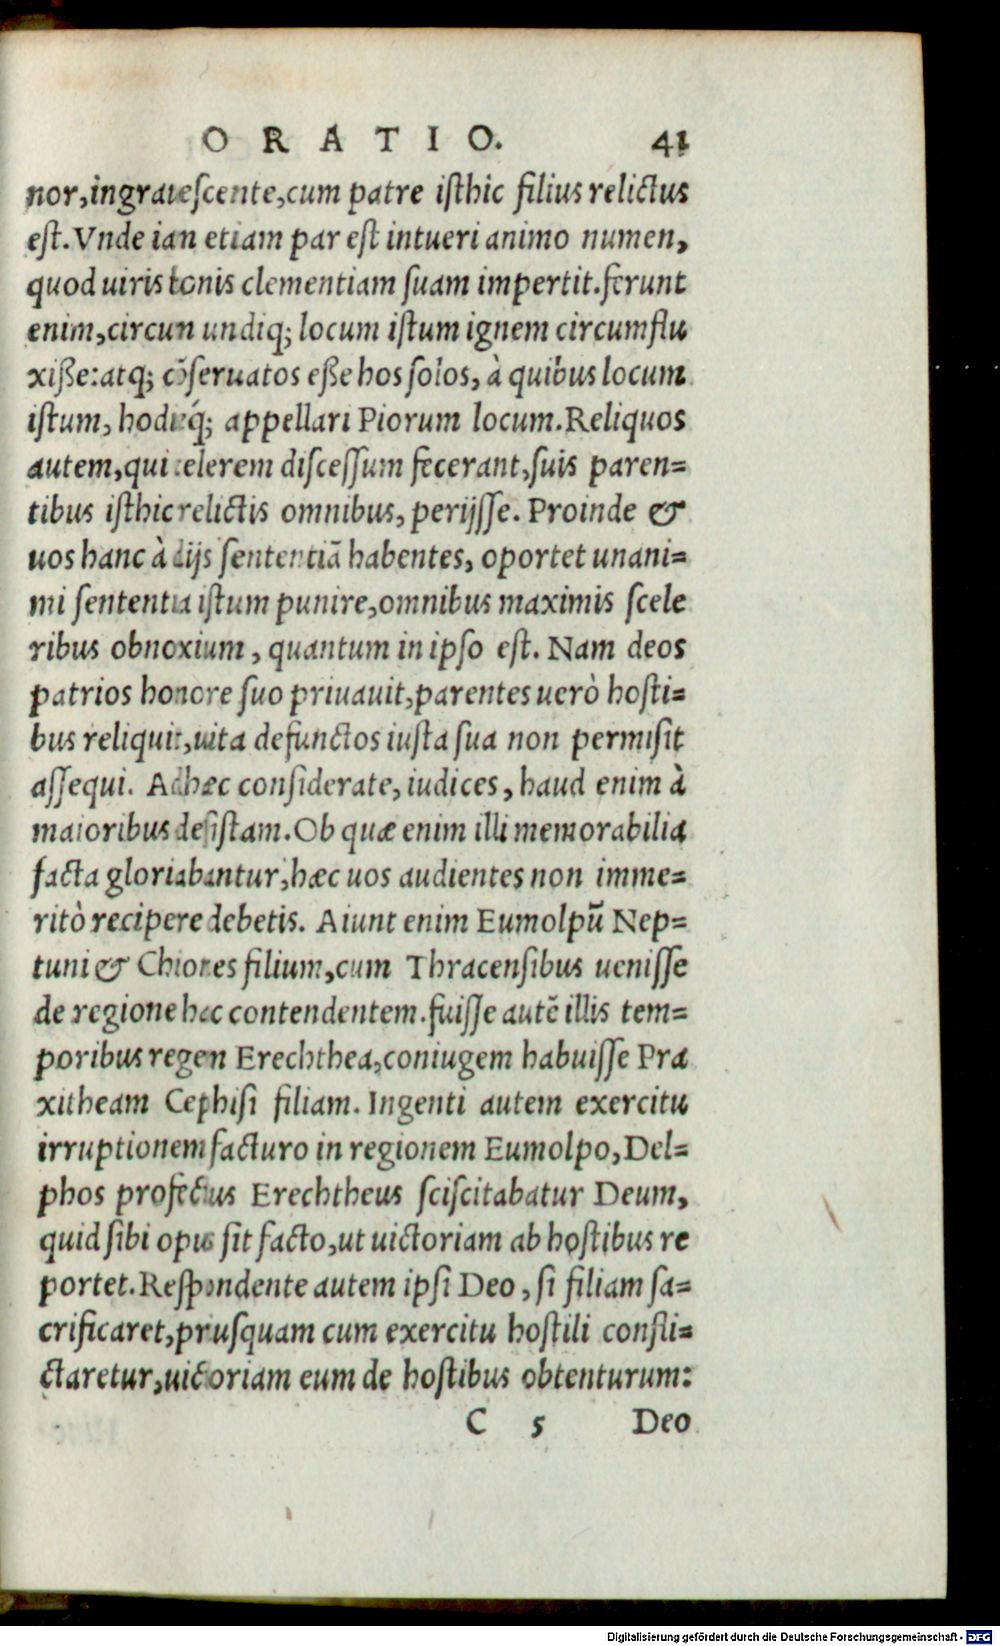 ORATIO. 41
nor,ingrauescente,cum patre isthic filius relictus
est. Vnde iam etiam par est intueri animo numen,
quod uiris bonis clementiam suam impertit. ferunt
enim,circun undiq; locum istum ignem circumflu
xiße:atq; cōseruatos eße hos solos, à quibus locum
istum, hodieq́; appellari Piorum locum. Reliquos
autem,qui celerem discessum fecerant,suis paren=
tibus isthic relictis omnibus, perijsse. Proinde &
uos hanc à dijs sententiã habentes, oportet unani=
mi sententia istum punire,omnibus maximis scele
ribus obnoxium, quantum in ipso est. Nam deos
patrios honore suo priuauit,parentes uerò hosti=
bus reliquit,uita defunctos iusta sua non permisit
assequi. Adhæc considerate, iudices, haud enim à
maioribus desistam. Ob quæ enim illi memorabilia
facta gloriabantur,hæc uos audientes non imme=
ritò recipere debetis. Aiunt enim Eumolpũ Nep=
tuni & Chiones filium,cum Thracensibus uenisse
de regione hac contendentem. fuisse autẽ illis tem=
poribus regem Erechthea,coniugem habuisse Pra
xitheam Cephisi filiam. Ingenti autem exercitu
irruptionem facturo in regionem Eumolpo, Del=
phos profectus Erechtheus sciscitabatur Deum,
quid sibi opus sit facto,ut uictoriam ab hostibus re
portet. Respondente autem ipsi Deo, si filiam sa=
crificaret,priusquam cum exercitu hostili confli=
ctaretur,uictoriam eum de hostibus obtenturum:
C 5 Deo
Digitalisierung gefördert durch die Deutsche Forschungsgemeinschaft - DFG